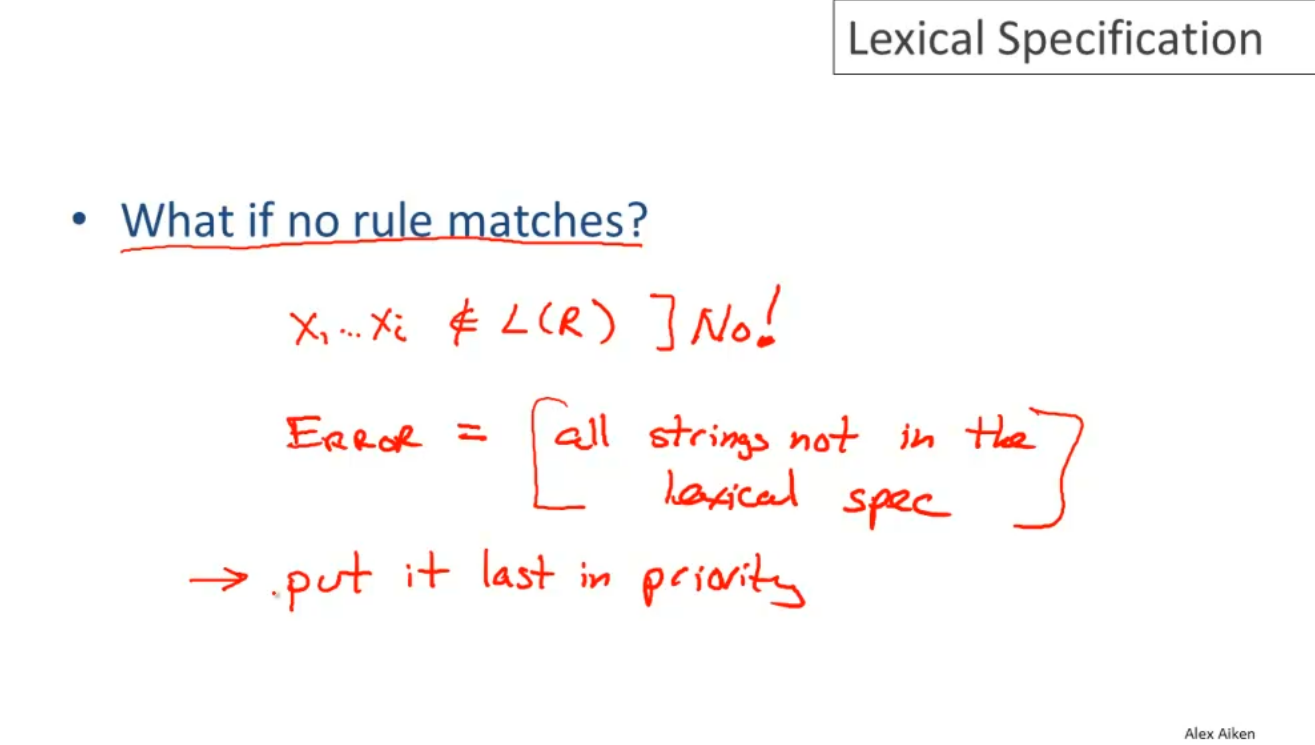 Lexical Specification
• What if no rule matches?
x₁...xᵢ ∉ L(R) ] No!
ERROR = [all strings not in the
lexical spec]
→ .put it last in priority
Alex Aiken